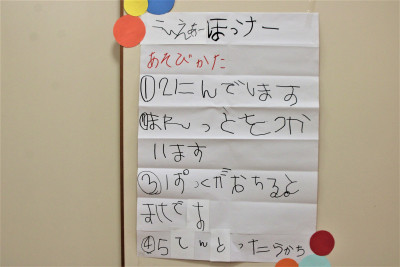 えあーほっけー
あそびかた
①2にんでします
②まれっとをつか
います
③ぱっくがおちると
まけです
④5てんとったらかち